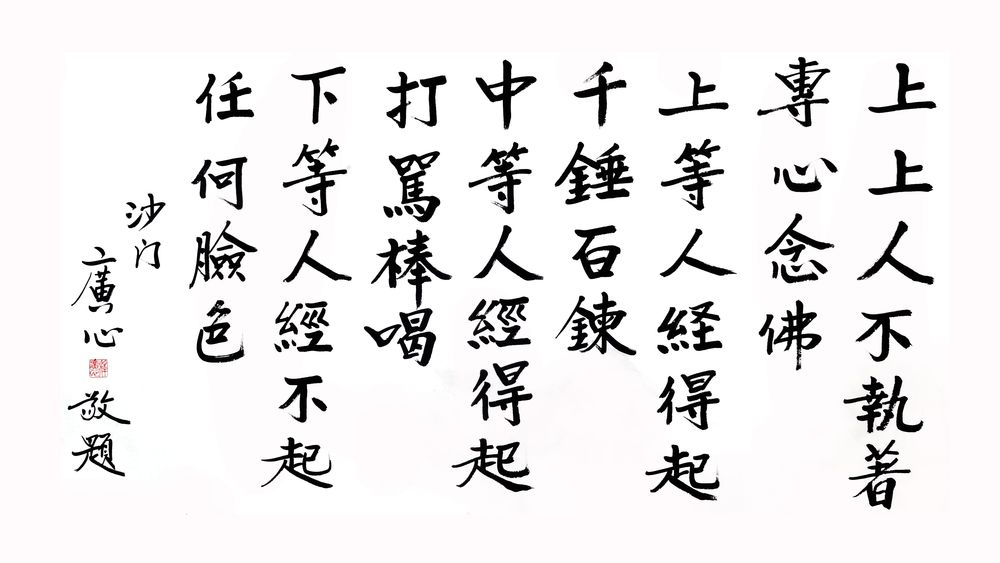 上上人不執著
專心念佛
上等人経得起
千錘百鍊
中等人經得起
打罵棒喝
下等人經不起
任何臉色
沙门
廣心
敬題